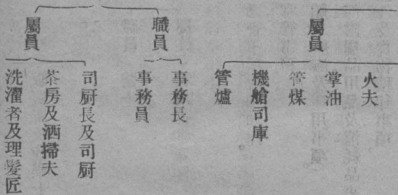 屬員
火夫
掌油
管煤
機艙司庫
管爐
職員
事務長
事務員
屬員
司厨長及司厨
茶房及洒掃夫
洗濯者及理髮匠